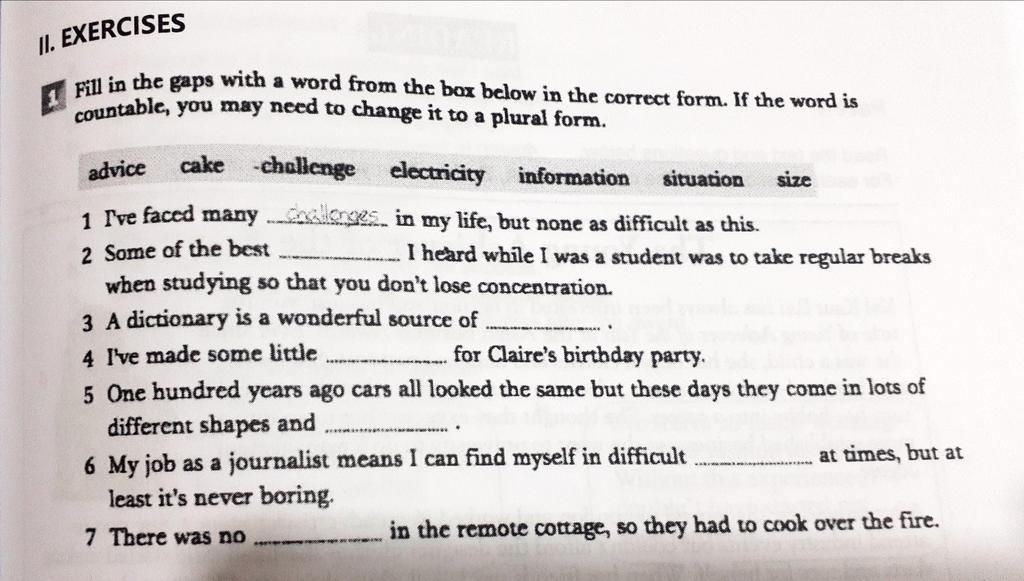 II. EXERCISES
1 Fill in the gaps with a word from the box below in the correct form. If the word is
countable, you may need to change it to a plural form.
advice cake challenge electricity information situation size
1 I've faced many challenges in my life, but none as difficult as this.
2 Some of the best .................... I heard while I was a student was to take regular breaks
when studying so that you don't lose concentration.
3 A dictionary is a wonderful source of .................... .
4 I've made some little .................... for Claire's birthday party.
5 One hundred years ago cars all looked the same but these days they come in lots of
different shapes and .................... .
6 My job as a journalist means I can find myself in difficult .................... at times, but at
least it's never boring.
7 There was no .................... in the remote cottage, so they had to cook over the fire.